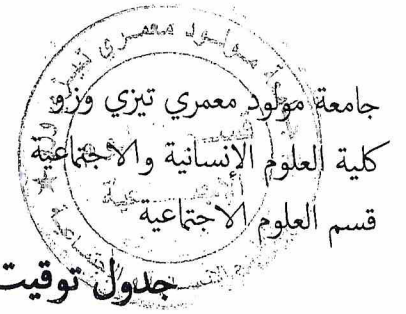 جامعة مولود معمري تيزي وزو
كلية العلوم الإنسانية والاجتماعية
قسم العلوم الاجتماعية
جدول توقيت